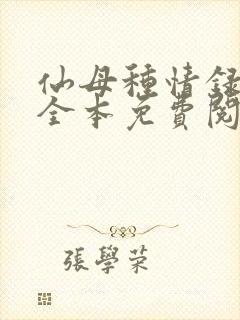 仙母種情録
全本免費閱
張學荣